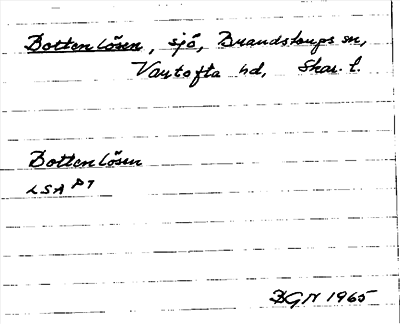 Bottenlösen, sjö, Brandstorps sn,
Vartofta hd, Skar. l.
Bottenlösen
LSA P7
DGN 1965